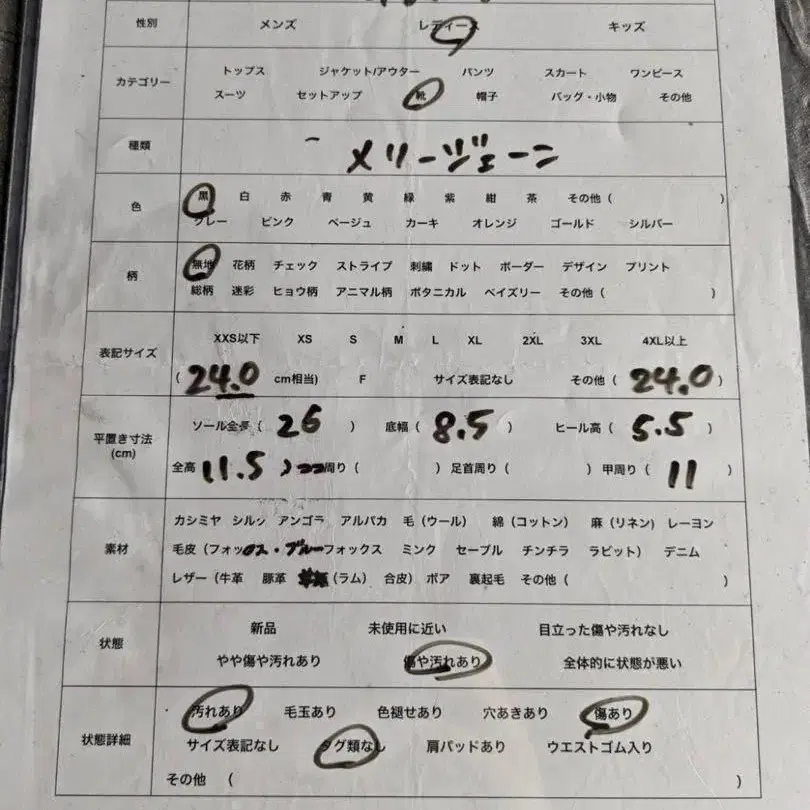 性別 メンズ レディース キッズ
カテゴリー トップス ジャケット/アウター パンツ スカート ワンピース
スーツ セットアップ 靴 帽子 バッグ・小物 その他
種類 メリージェーン
色 黒 白 赤 青 黄 緑 紫 紺 茶 その他 ( )
グレー ピンク ベージュ カーキ オレンジ ゴールド シルバー
柄 無地 花柄 チェック ストライプ 刺繍 ドット ボーダー デザイン プリント
総柄 迷彩 ヒョウ柄 アニマル柄 ボタニカル ペイズリー その他 ( )
表記サイズ XXS以下 XS S M L XL 2XL 3XL 4XL以上
( 24.0 cm相当) F サイズ表記なし その他 ( 24.0 )
平置き寸法 (cm) ソール全長 ( 26 ) 底幅 ( 8.5 ) ヒール高 ( 5.5 )
全高 11.5 周り ( ) 足首周り ( ) 甲周り ( 11 )
素材 カシミヤ シルク アンゴラ アルパカ 毛 (ウール) 綿 (コットン) 麻 (リネン) レーヨン
毛皮 (フォックス・ブルーフォックス ミンク セーブル チンチラ ラビット) デニム
レザー (牛革 豚革 (ラム) 合皮) ボア 裏起毛 その他 ( )
状態 新品 未使用に近い 目立った傷や汚れなし
やや傷や汚れあり 傷や汚れあり 全体的に状態が悪い
状態詳細 汚れあり 毛玉あり 色褪せあり 穴あきあり 傷あり
サイズ表記なし タグ類なし 肩パッドあり ウエストゴム入り
その他 ( )